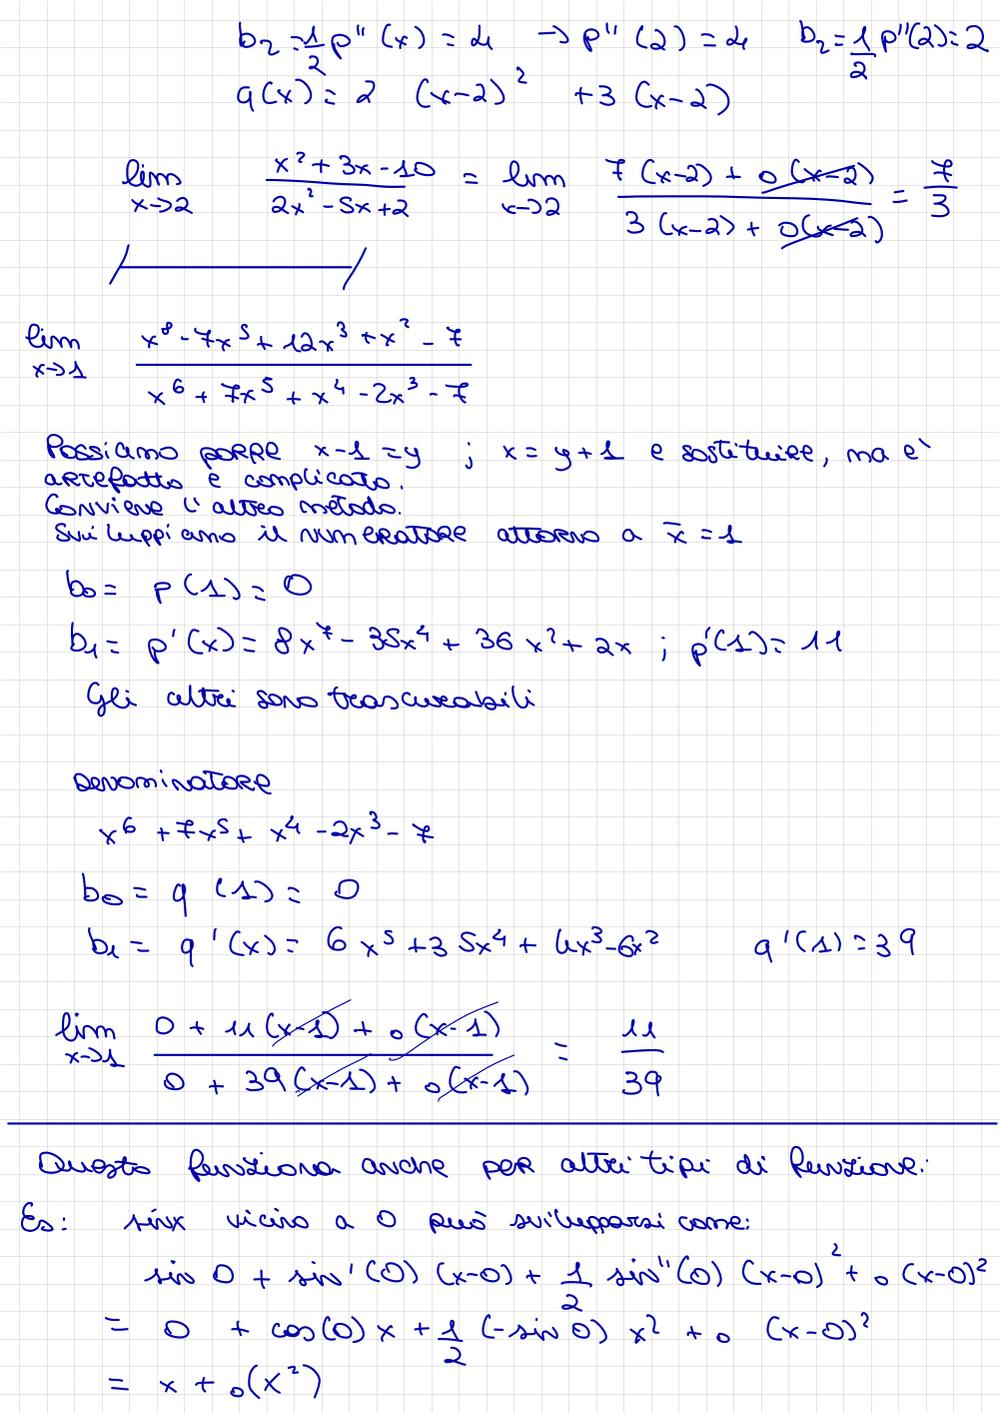 b₂ = 1/2 p''(x) = 4 → p''(2) = 4 b₂ = 1/2 p''(2) = 2
q(x) = 2 (x-2)² + 3 (x-2)
lim x→2 (x² + 3x - 10)/(2x² - 5x + 2) = lim x→2 (7 (x-2) + o(x-2))/(3 (x-2) + o(x-2)) = 7/3
lim x→1 (x⁸ - 7x⁵ + 12x³ + x² - 7)/(x⁶ + 7x⁵ + x⁴ - 2x³ - 7)
Possiamo porre x-1 = y ; x = y+1 e sostituire, ma e'
artefatto e complicato.
Conviene l'altro metodo.
Sviluppiamo il numeratore attorno a x̄ = 1
b₀ = p(1) = 0
b₁ = p'(x) = 8x⁷ - 35x⁴ + 36x² + 2x ; p'(1) = 11
Gli altri sono trascurabili
Denominatore
x⁶ + 7x⁵ + x⁴ - 2x³ - 7
b₀ = q (1) = 0
b₁ = q'(x) = 6x⁵ + 35x⁴ + 4x³ - 6x² q'(1) = 39
lim x→1 (0 + 11(x-1) + o(x-1))/(0 + 39(x-1) + o(x-1)) = 11/39
Questo funziona anche per altri tipi di funzione.
Es: sinx vicino a 0 può svilupparsi come:
sin 0 + sin'(0) (x-0) + 1/2 sin''(0) (x-0)² + o(x-0)²
= 0 + cos(0) x + 1/2 (-sin 0) x² + o (x-0)²
= x + o(x²)